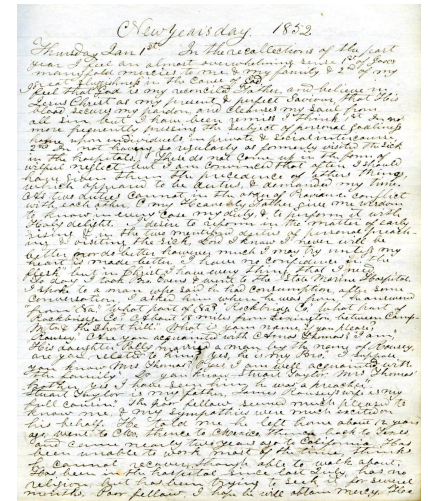 New Years day. 1852
Thursday Jan 1st In the recollections of the past
year I feel an almost overwhelming sense 1st of God's
manifold mercies to me & my family & 2nd of my
great sluggishness in the cause of God.
I feel that God is my reconciled Father, and believe in
Jesus Christ as my present & perfect Saviour, that His
blood secures my pardon, and cleanses my soul from
all sin. but I have been remiss I think 1st In not
more frequently pressing the subject of personal godliness
home upon individuals in private & social intercourse.
2nd in not having so regularly as formerly visited the sick
in the hospitals. These do not come up in the form of
wilful neglect but I am convinced that often I should
have given them the precedence of other things
which appeared to be duties, & demanded my time.
As two duties cannot in the order of Providence conflict
with each other. Come Heavenly Father give me wisdom
to know in every case my duty, & to perform it with
holy delight. I desire to reform in the matter of early
rising, in the two mentioned duties of personal preach-
ing & visiting the sick. Lord I know I never will be
better made better however much I may try unless my
heart is made better. I have no confidence in the
flesh but in Christ I have every thing that I need.
To day I took Bro. Owens & went to the State Marine Hospital.
I spoke to a man who said in that conversation, after some
conversation, I asked him where he was from, he answered
"from Va." "What part of Va?" "Rockbridge Co." "What part of
Rockbridge?" "About miles from Lexington between Camp-
& the short hill." "What is your name if you please?"
"Rowsey." "Are you acquainted with Thomas?" "I am,
His daughter Polly married a man by the name of Rowsey,
are you related to him?" "Yes, he is my Bro." "I suppose
you know Mrs Thomas?" "Yes, I am well acquainted with
the family." "Do you know Stuart Taylor Mrs Thomas'
brother?" "Yes I have seen him he was a preacher."
"Stuart Taylor is my father, James Rowsey's wife is my
full cousin." The poor fellow seemed much pleased to
know me, & my sympathies were much excited on
his behalf. He told me he left home about 12 years
ago, went to Ohio, thence to Mexico, thence back to Texas
and came nearly two years ago to California. Has
been unable to work most of the time, thinks
he cannot recover, though able to walk about.
Has been in the hospital since last July, has no
religion but has been trying to seek it for several
months. Poor fellow, I hope he will obtain mercy. His